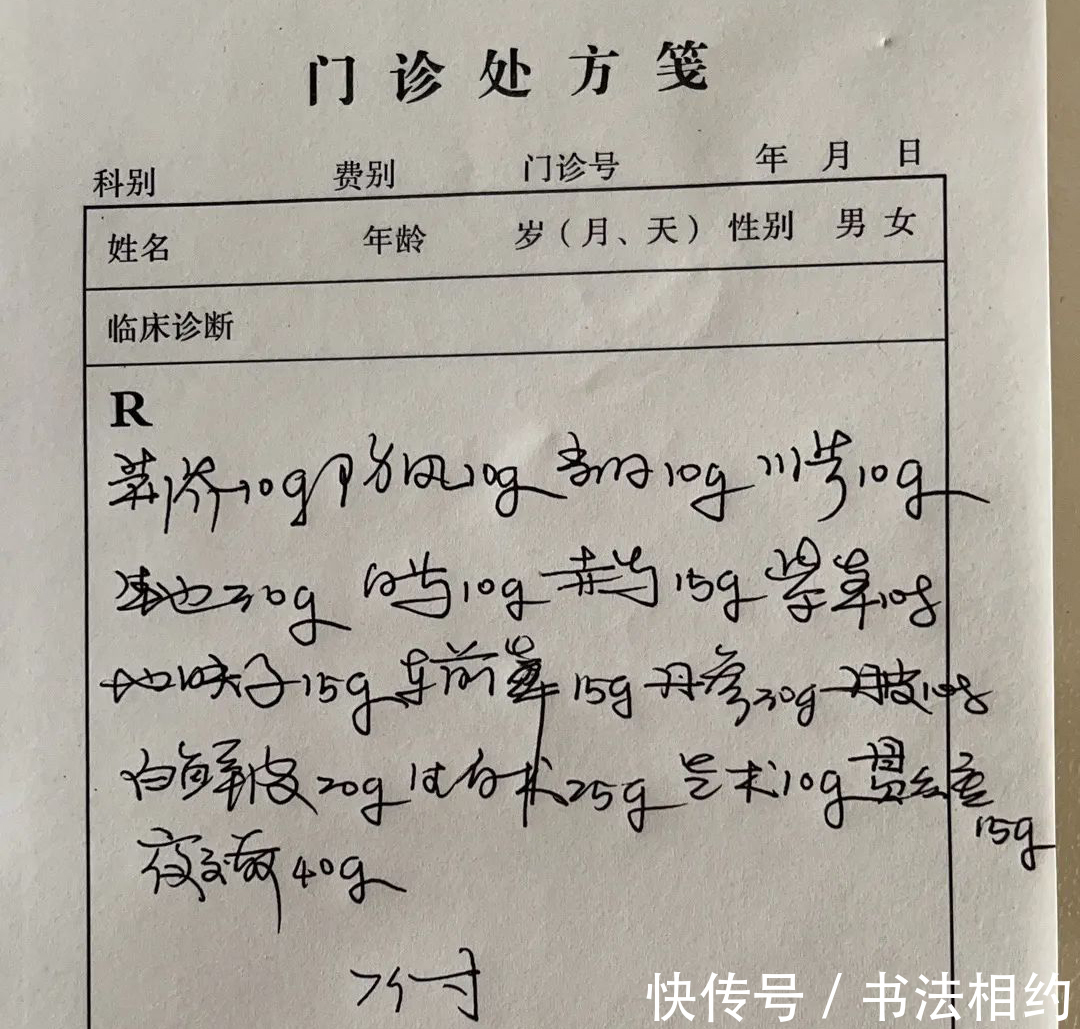 门诊处方笺
科别 费别 门诊号 年 月 日
姓名 年龄 岁（月、天） 性别 男 女
临床诊断
R
荆芥10g 防风10g 当归10g 川芎10g
生地30g 白芍10g 赤芍15g 紫草10g
地肤子15g 车前草15g 丹参30g 丹皮10g
白鲜皮20g 白术25g 莪术10g 贯众
15g
夜交藤40g
7付
快传号 / 书法相约